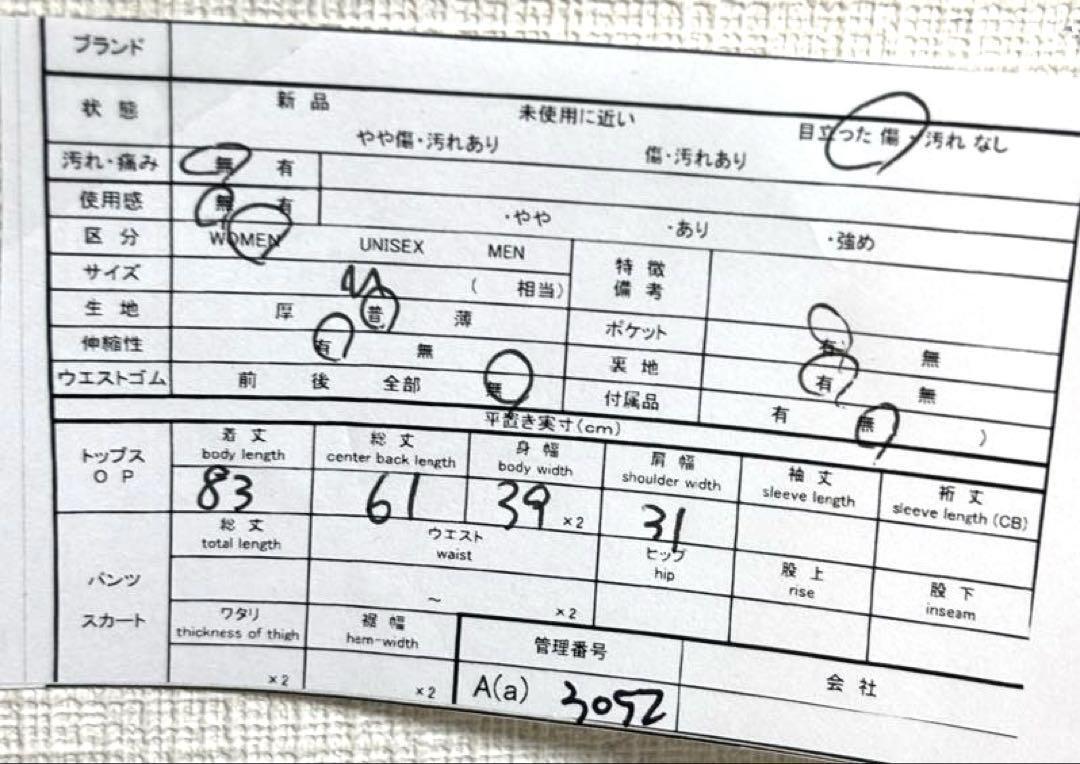 ブランド
状態 新品 未使用に近い 目立った傷・汚れなし
やや傷・汚れあり 傷・汚れあり
汚れ・痛み 無 有
使用感 無 有 ・やや ・あり ・強め
区分 WOMEN UNISEX MEN 特徴
備考
サイズ M ( 相当)
生地 厚 普 薄 ポケット 有 無
伸縮性 有 無 裏地 有 無
ウエストゴム 前 後 全部 無 付属品 有 無 )
平置き実寸(cm)
トップス
OP
着丈 総丈 身幅 肩幅 袖丈 裄丈
body length center back length body width shoulder width sleeve length sleeve length (CB)
83 61 39 ×2 31
パンツ
スカート
総丈 ウエスト ヒップ 股上 股下
total length waist hip rise inseam
~ ×2
ワタリ 裾幅 管理番号 会社
thickness of thigh hem-width
×2 ×2 A(a) 3052